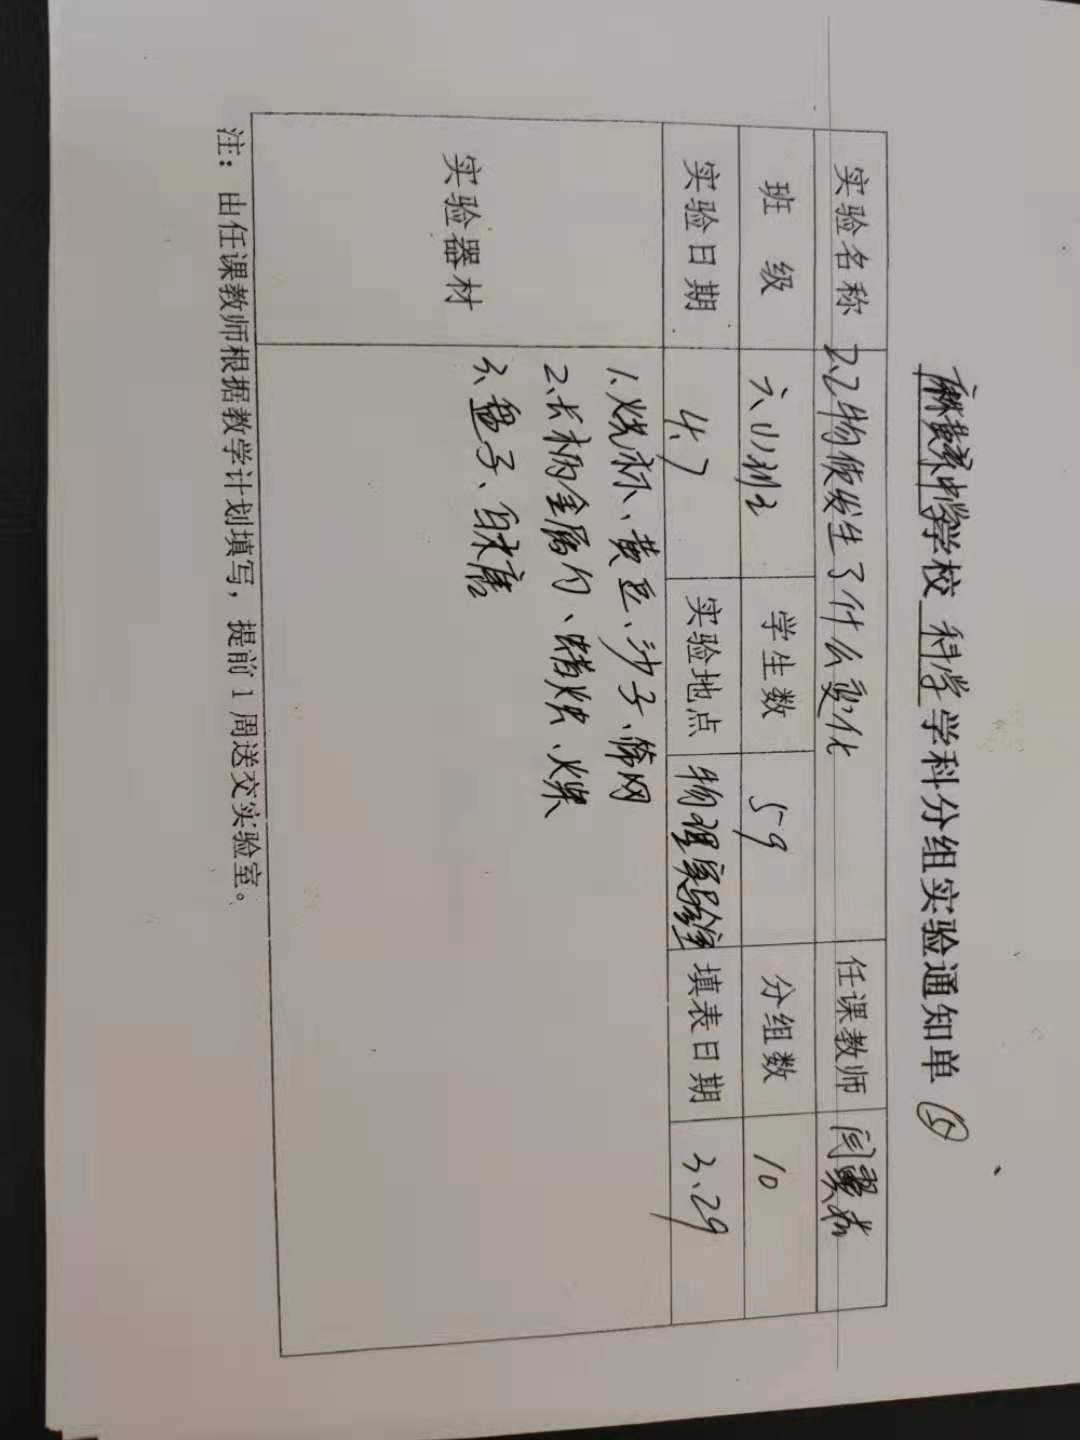 麻黄梁中学学校 科学 学科分组实验通知单 ④
实验名称 2.2物质发生了什么变化 任课教师
班 级 六、(1)班 学生数 59 分组数 10
实验日期 4.7 实验地点 物理实验室 填表日期 3.29
实验器材
1.烧杯、黄豆、沙子、筛网
2.长柄金属勺、蜡烛、火柴
3.盘子、白糖
注：由任课教师根据教学计划填写，提前1周送交实验室。